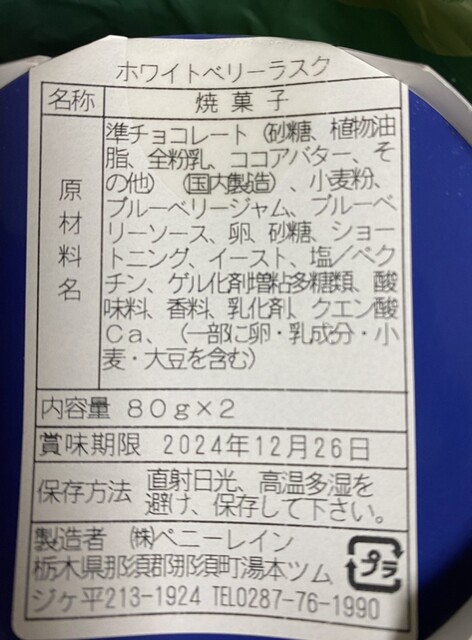 ホワイトベリーラスク
名称 焼菓子
原材料名
準チョコレート（砂糖、植物油
脂、全粉乳、ココアバター、そ
の他）（国内製造）、小麦粉、
ブルーベリージャム、ブルーベ
リーソース、卵、砂糖、ショー
トニング、イースト、塩／ペク
チン、ゲル化剤増粘多糖類、酸
味料、香料、乳化剤、クエン酸
Ca、（一部に卵・乳成分・小
麦・大豆を含む）
内容量 80g×2
賞味期限 2024年12月26日
保存方法 直射日光、高温多湿を
避け、保存して下さい。
製造者 ㈱ペニーレイン
栃木県那須郡那須町湯本ツム
ジケ平213-1924 TEL0287-76-1990
プラ